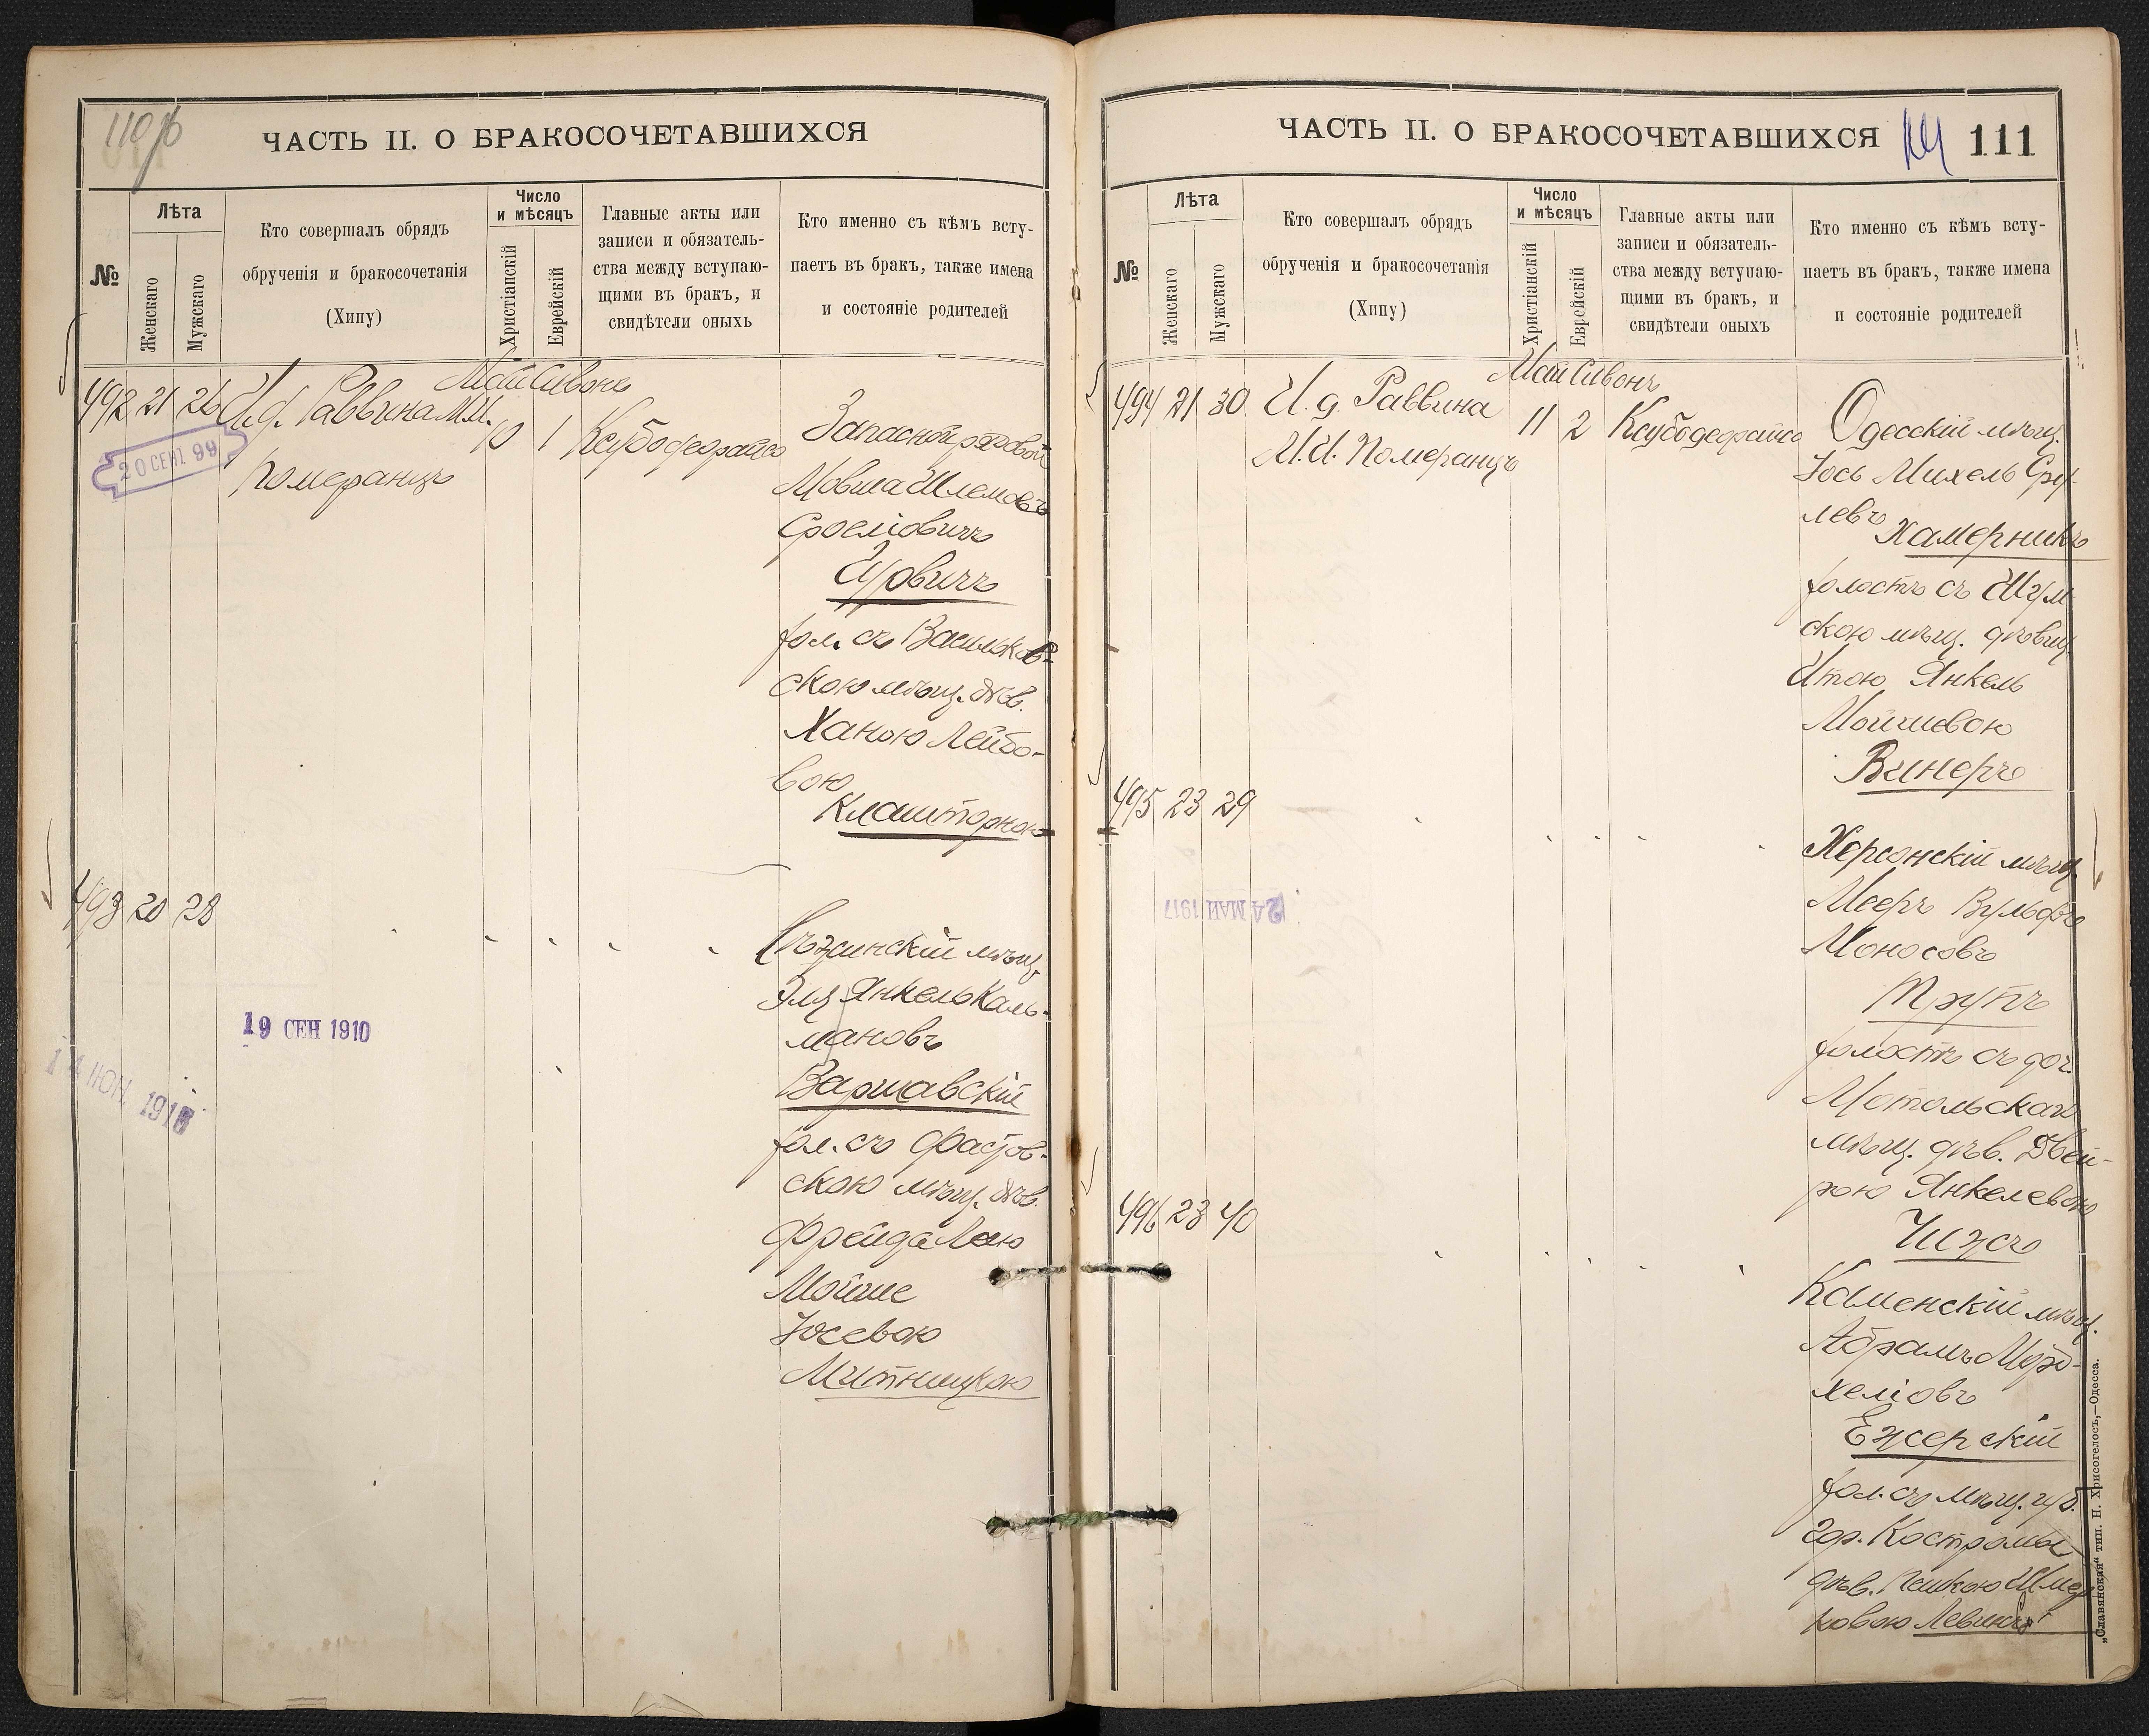 110 об
ЧАСТЬ II. О БРАКОСОЧЕТАВШИХСЯ
№
Лѣта
Женскаго
Мужскаго
Кто совершалъ обрядъ
обрученія и бракосочетанія
(Хипу)
Число
и мѣсяцъ
Христіанскій
Еврейскій
Главные акты или
записи и обязатель-
ства между вступаю-
щими въ бракъ, и
свидѣтели оныхъ
Кто именно съ кѣмъ всту-
паетъ въ бракъ, также имена
и состояніе родителей
Май Сивонъ
492 21 26 И.д. Раввина
Померанцъ
10 1 Ксубодефрайсо
20 СЕНТ 99
Запасной рядовой
Мовша Шлемовъ
Сроеліовичъ
Гуровичъ
хол. съ Васильков-
скою мѣщ. дѣв.
Ханою Лейбо-
вою
Клашторною
493 20 28
мѣщ.
Янкель Каль-
мановъ
Варшавскій
хол. съ Фастов-
скою мѣщ. дѣв.
Фрейда Лею
Мойше
Іосевою
Митницкою
19 СЕН 1910
14 ІЮН. 191
ЧАСТЬ II. О БРАКОСОЧЕТАВШИХСЯ
111
№
Лѣта
Женскаго
Мужскаго
Кто совершалъ обрядъ
обрученія и бракосочетанія
(Хипу)
Число
и мѣсяцъ
Христіанскій
Еврейскій
Главные акты или
записи и обязатель-
ства между вступаю-
щими въ бракъ, и
свидѣтели оныхъ
Кто именно съ кѣмъ всту-
паетъ въ бракъ, также имена
и состояніе родителей
Май Сивонъ
494 21 30 И.д. Раввина
Померанцъ
11 2 Ксубодефрайсо
Одесскій мѣщ.
Іось Михель Сру-
левъ
Камерникъ
холостъ съ Шум
скою мѣщ. дѣвиц.
Итою Янкель
Мойшевою
Винеръ
495 23 29
Херсонскій мѣщ.
Мееръ Вульфъ
Моносовъ
Трупъ
холостъ съ доч.
Мотольскаго
мѣщ. дѣв. Двей-
рою Янкелевою
Чижъ
24 МАЙ 1917
496 23 40
Каменскій мѣщ.
Абрамъ Мордо-
хеліовъ
Ежерскій
хол. съ мѣщ. губ.
гор. Костромы
дѣв. Пешкою Шмер
ковою
„Славянская“ тип. Н. Хрисогелосъ,—Одесса.